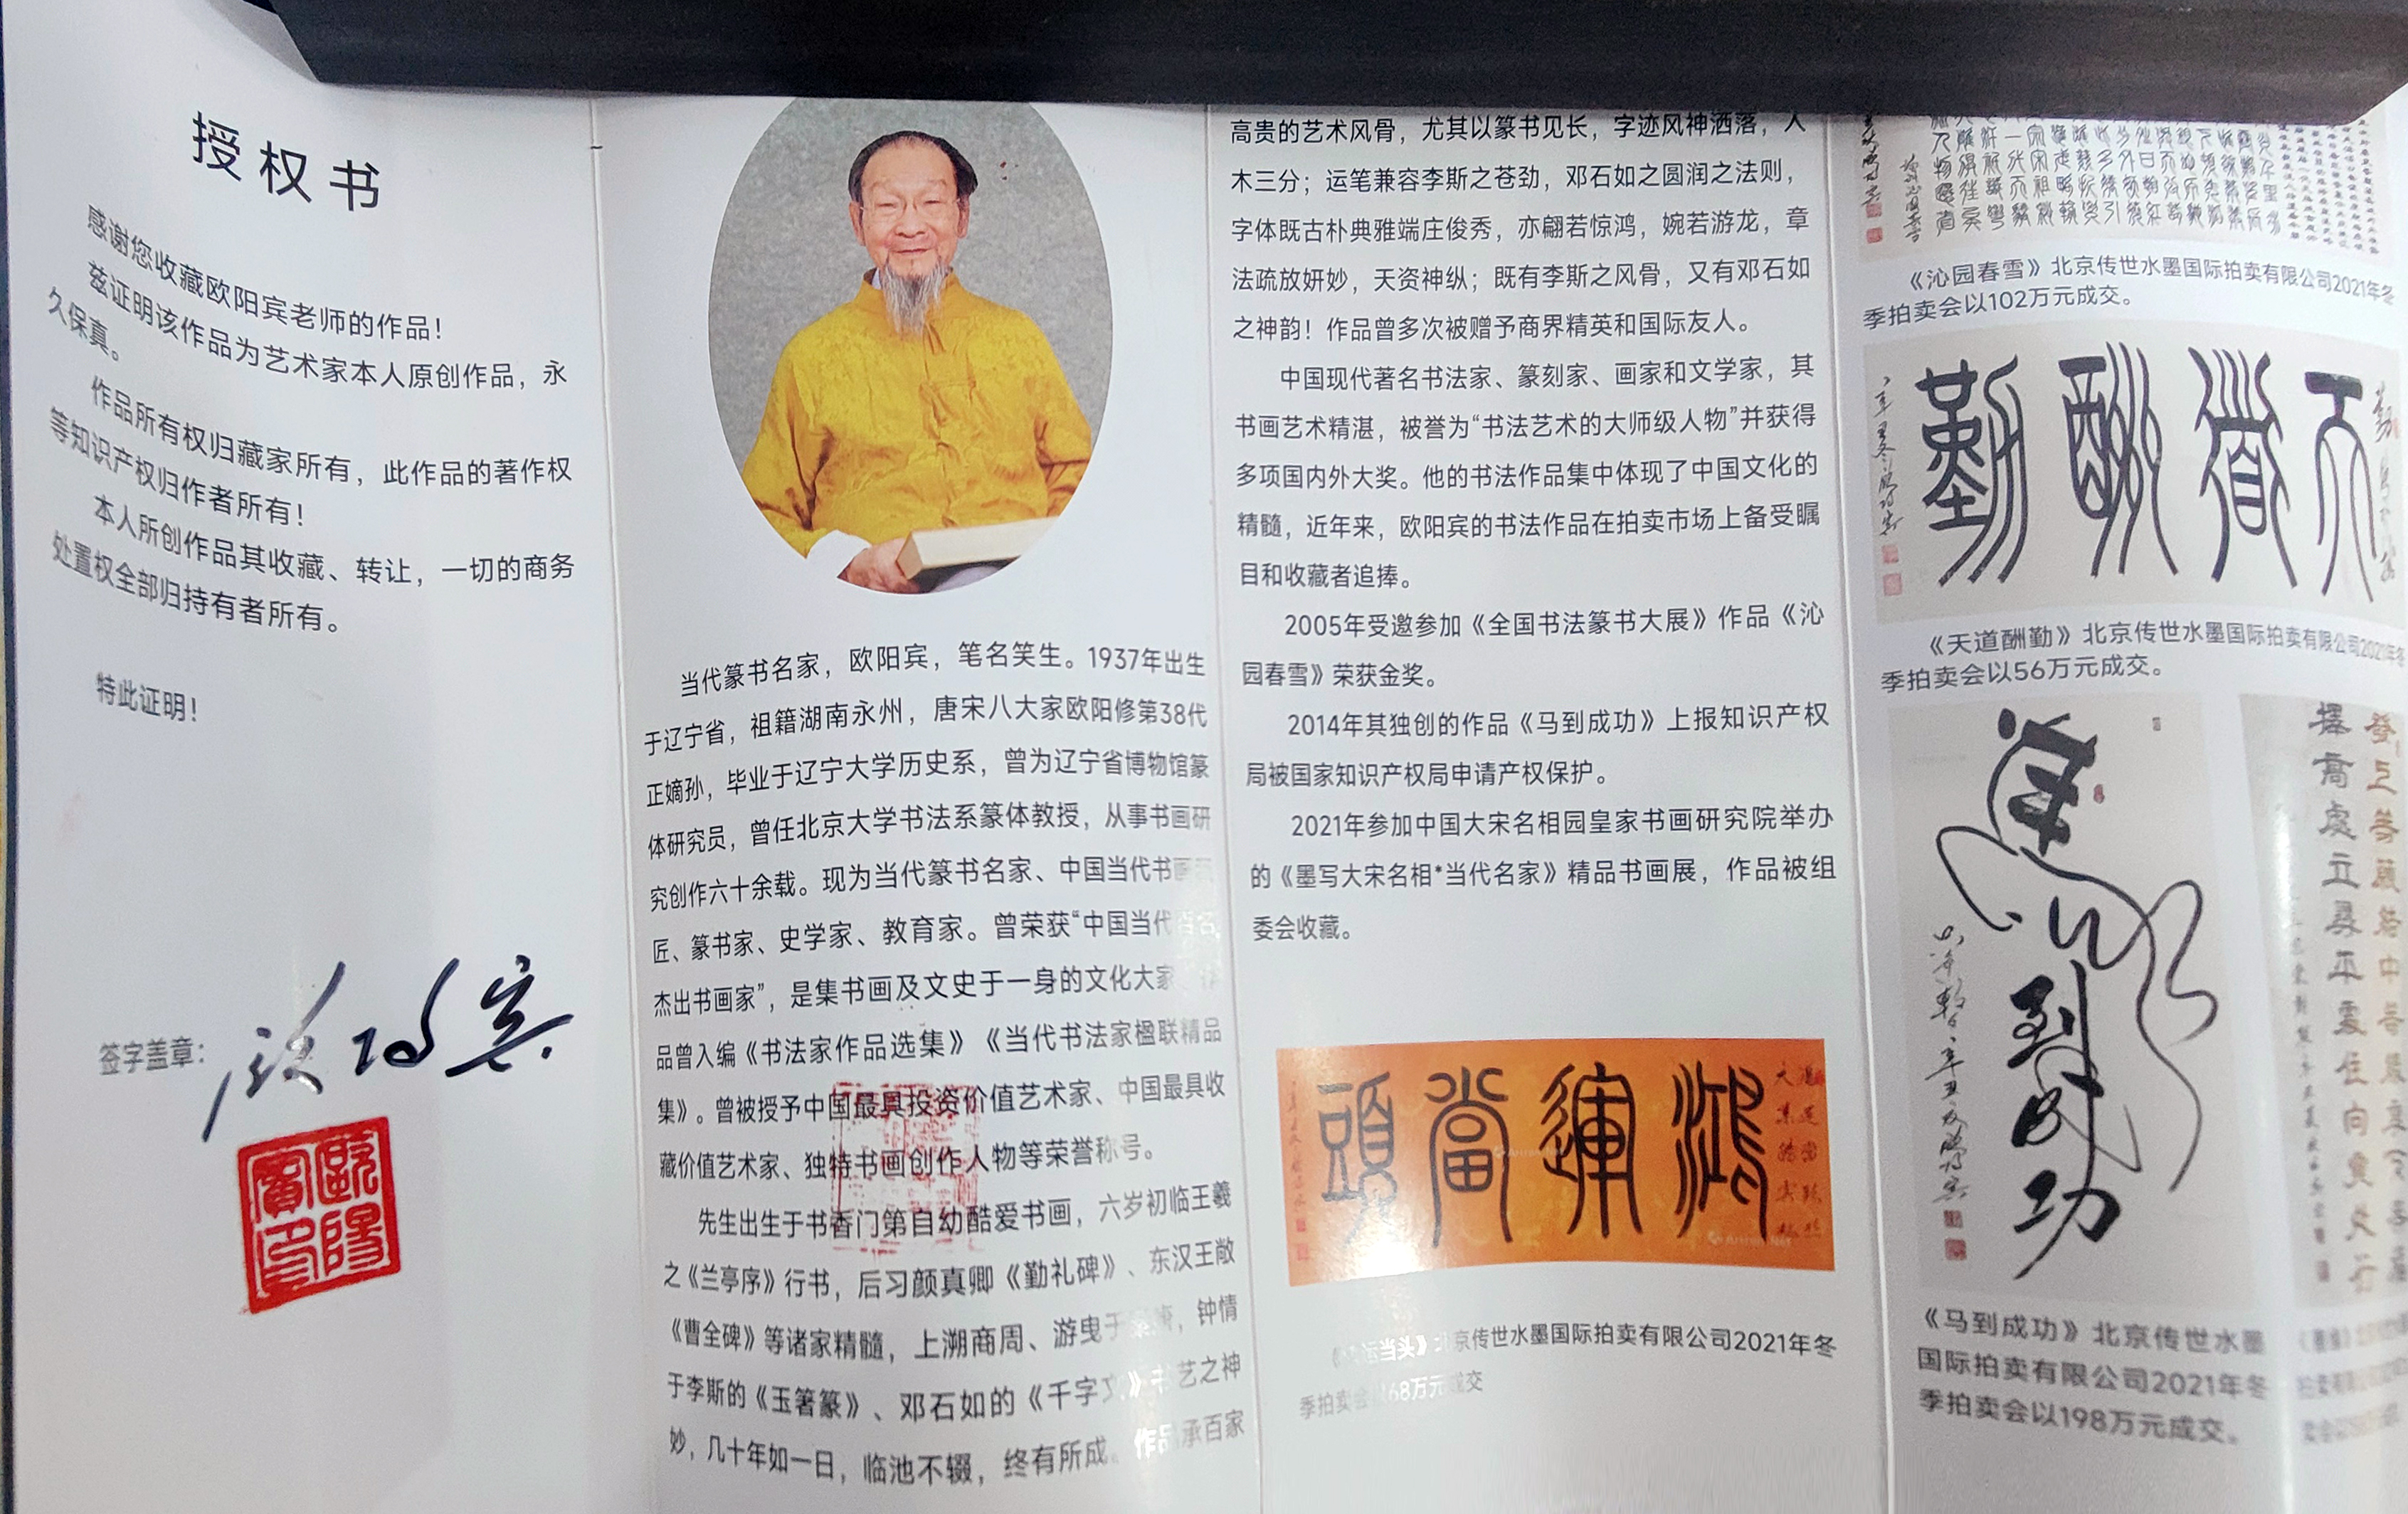 授权书
感谢您收藏欧阳宾老师的作品！
兹证明该作品为艺术家本人原创作品，永
久保真。
作品所有权归藏家所有，此作品的著作权
等知识产权归作者所有！
本人所创作品其收藏、转让，一切的商务
处置权全部归持有者所有。
特此证明！
签字盖章：
欧阳宾
歐陽賓印
当代篆书名家，欧阳宾，笔名笑生。1937年出生
于辽宁省，祖籍湖南永州，唐宋八大家欧阳修第38代
正嫡孙，毕业于辽宁大学历史系，曾为辽宁省博物馆篆
体研究员，曾任北京大学书法系篆体教授，从事书画研
究创作六十余载。现为当代篆书名家、中国当代书画
匠、篆书家、史学家、教育家。曾荣获“中国当代
杰出书画家”，是集书画及文史于一身的文化大家
品曾入编《书法家作品选集》《当代书法家楹联精品
集》。曾被授予中国最具投资价值艺术家、中国最具收
藏价值艺术家、独特书画创作人物等荣誉称号。
先生出生于书香门第自幼酷爱书画，六岁初临王羲
之《兰亭序》行书，后习颜真卿《勤礼碑》、东汉王敞
《曹全碑》等诸家精髓，上溯商周、游曳于，钟情
于李斯的《玉箸篆》、邓石如的《千字文》书艺之神
妙，几十年如一日，临池不辍，终有所成。作品承百家
高贵的艺术风骨，尤其以篆书见长，字迹风神洒落，入
木三分；运笔兼容李斯之苍劲，邓石如之圆润之法则，
字体既古朴典雅端庄俊秀，亦翩若惊鸿，婉若游龙，章
法疏放妍妙，天资神纵；既有李斯之风骨，又有邓石如
之神韵！作品曾多次被赠予商界精英和国际友人。
中国现代著名书法家、篆刻家、画家和文学家，其
书画艺术精湛，被誉为“书法艺术的大师级人物”并获得
多项国内外大奖。他的书法作品集中体现了中国文化的
精髓，近年来，欧阳宾的书法作品在拍卖市场上备受瞩
目和收藏者追捧。
2005年受邀参加《全国书法篆书大展》作品《沁
园春雪》荣获金奖。
2014年其独创的作品《马到成功》上报知识产权
局被国家知识产权局申请产权保护。
2021年参加中国大宋名相园皇家书画研究院举办
的《墨写大宋名相*当代名家》精品书画展，作品被组
委会收藏。
頭當運鴻
运当头》北京传世水墨国际拍卖有限公司2021年冬
季拍卖会以68万元成交
《沁园春雪》北京传世水墨国际拍卖有限公司2021年冬
季拍卖会以102万元成交。
勤酬道天
《天道酬勤》北京传世水墨国际拍卖有限公司2021年冬
季拍卖会以56万元成交。
馬到成功
《马到成功》北京传世水墨
国际拍卖有限公司2021年冬
季拍卖会以198万元成交。